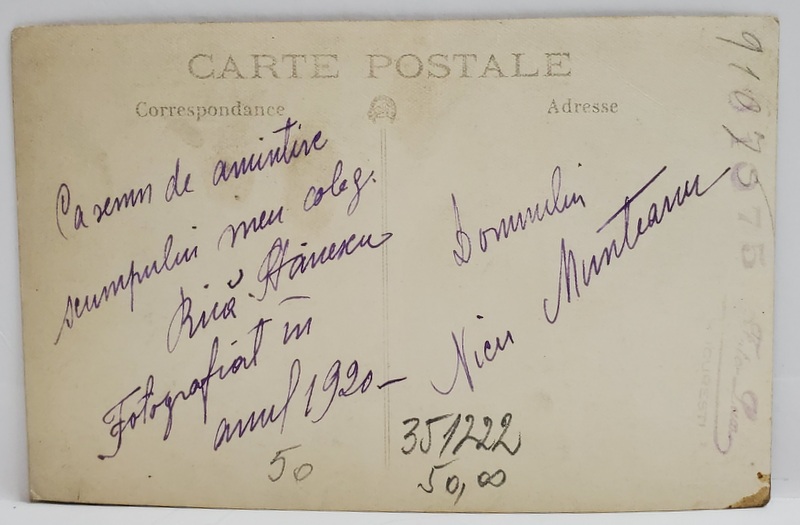 CARTE POSTALE
Correspondance
Adresse
Ca semn de amintire
scumpului meu coleg.
Rică Stănescu
Fotografiat în
anul 1920 –
Domnului
Nicu Munteanu
50
351222
50,00